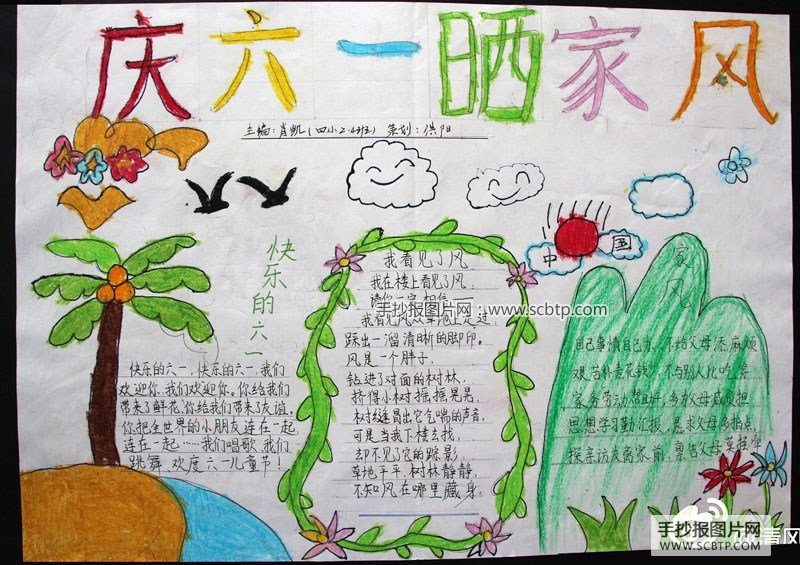 庆六一晒家风
主编:肖凯(四小2.4班) 策划:洪阳
中国
快乐的六一
快乐的六一,快乐的六一,我们
欢迎你,我们欢迎你。你给我们
带来了鲜花,你给我们带来了友谊,
你把全世界的小朋友连在一起
连在一起……我们唱歌,我们
跳舞,欢度六一儿童节!
我看见了风
我在楼上看见了风,
请你一定相信——
手抄报图片网:www.scbtp.com
我看见风从草地上走过
踩出一溜清晰的脚印。
风是一个胖子,
钻进了对面的树林,
挤得小树摇摇晃晃,
树缝冒出它气喘的声音,
可是当我下楼去找,
却不见了它的踪影,
草地平平,树林静静,
不知风在哪里藏身。
家风
自己事情自己办,不给父母添麻烦
艰苦朴素花钱少,不与别人比吃穿
家务劳动帮助干,多为父母减负担
思想学习勤汇报,恳求父母多指点
探亲访友离家前,禀告父母莫挂牵
手抄报图片网
WWW.SCBTP.COM
青风